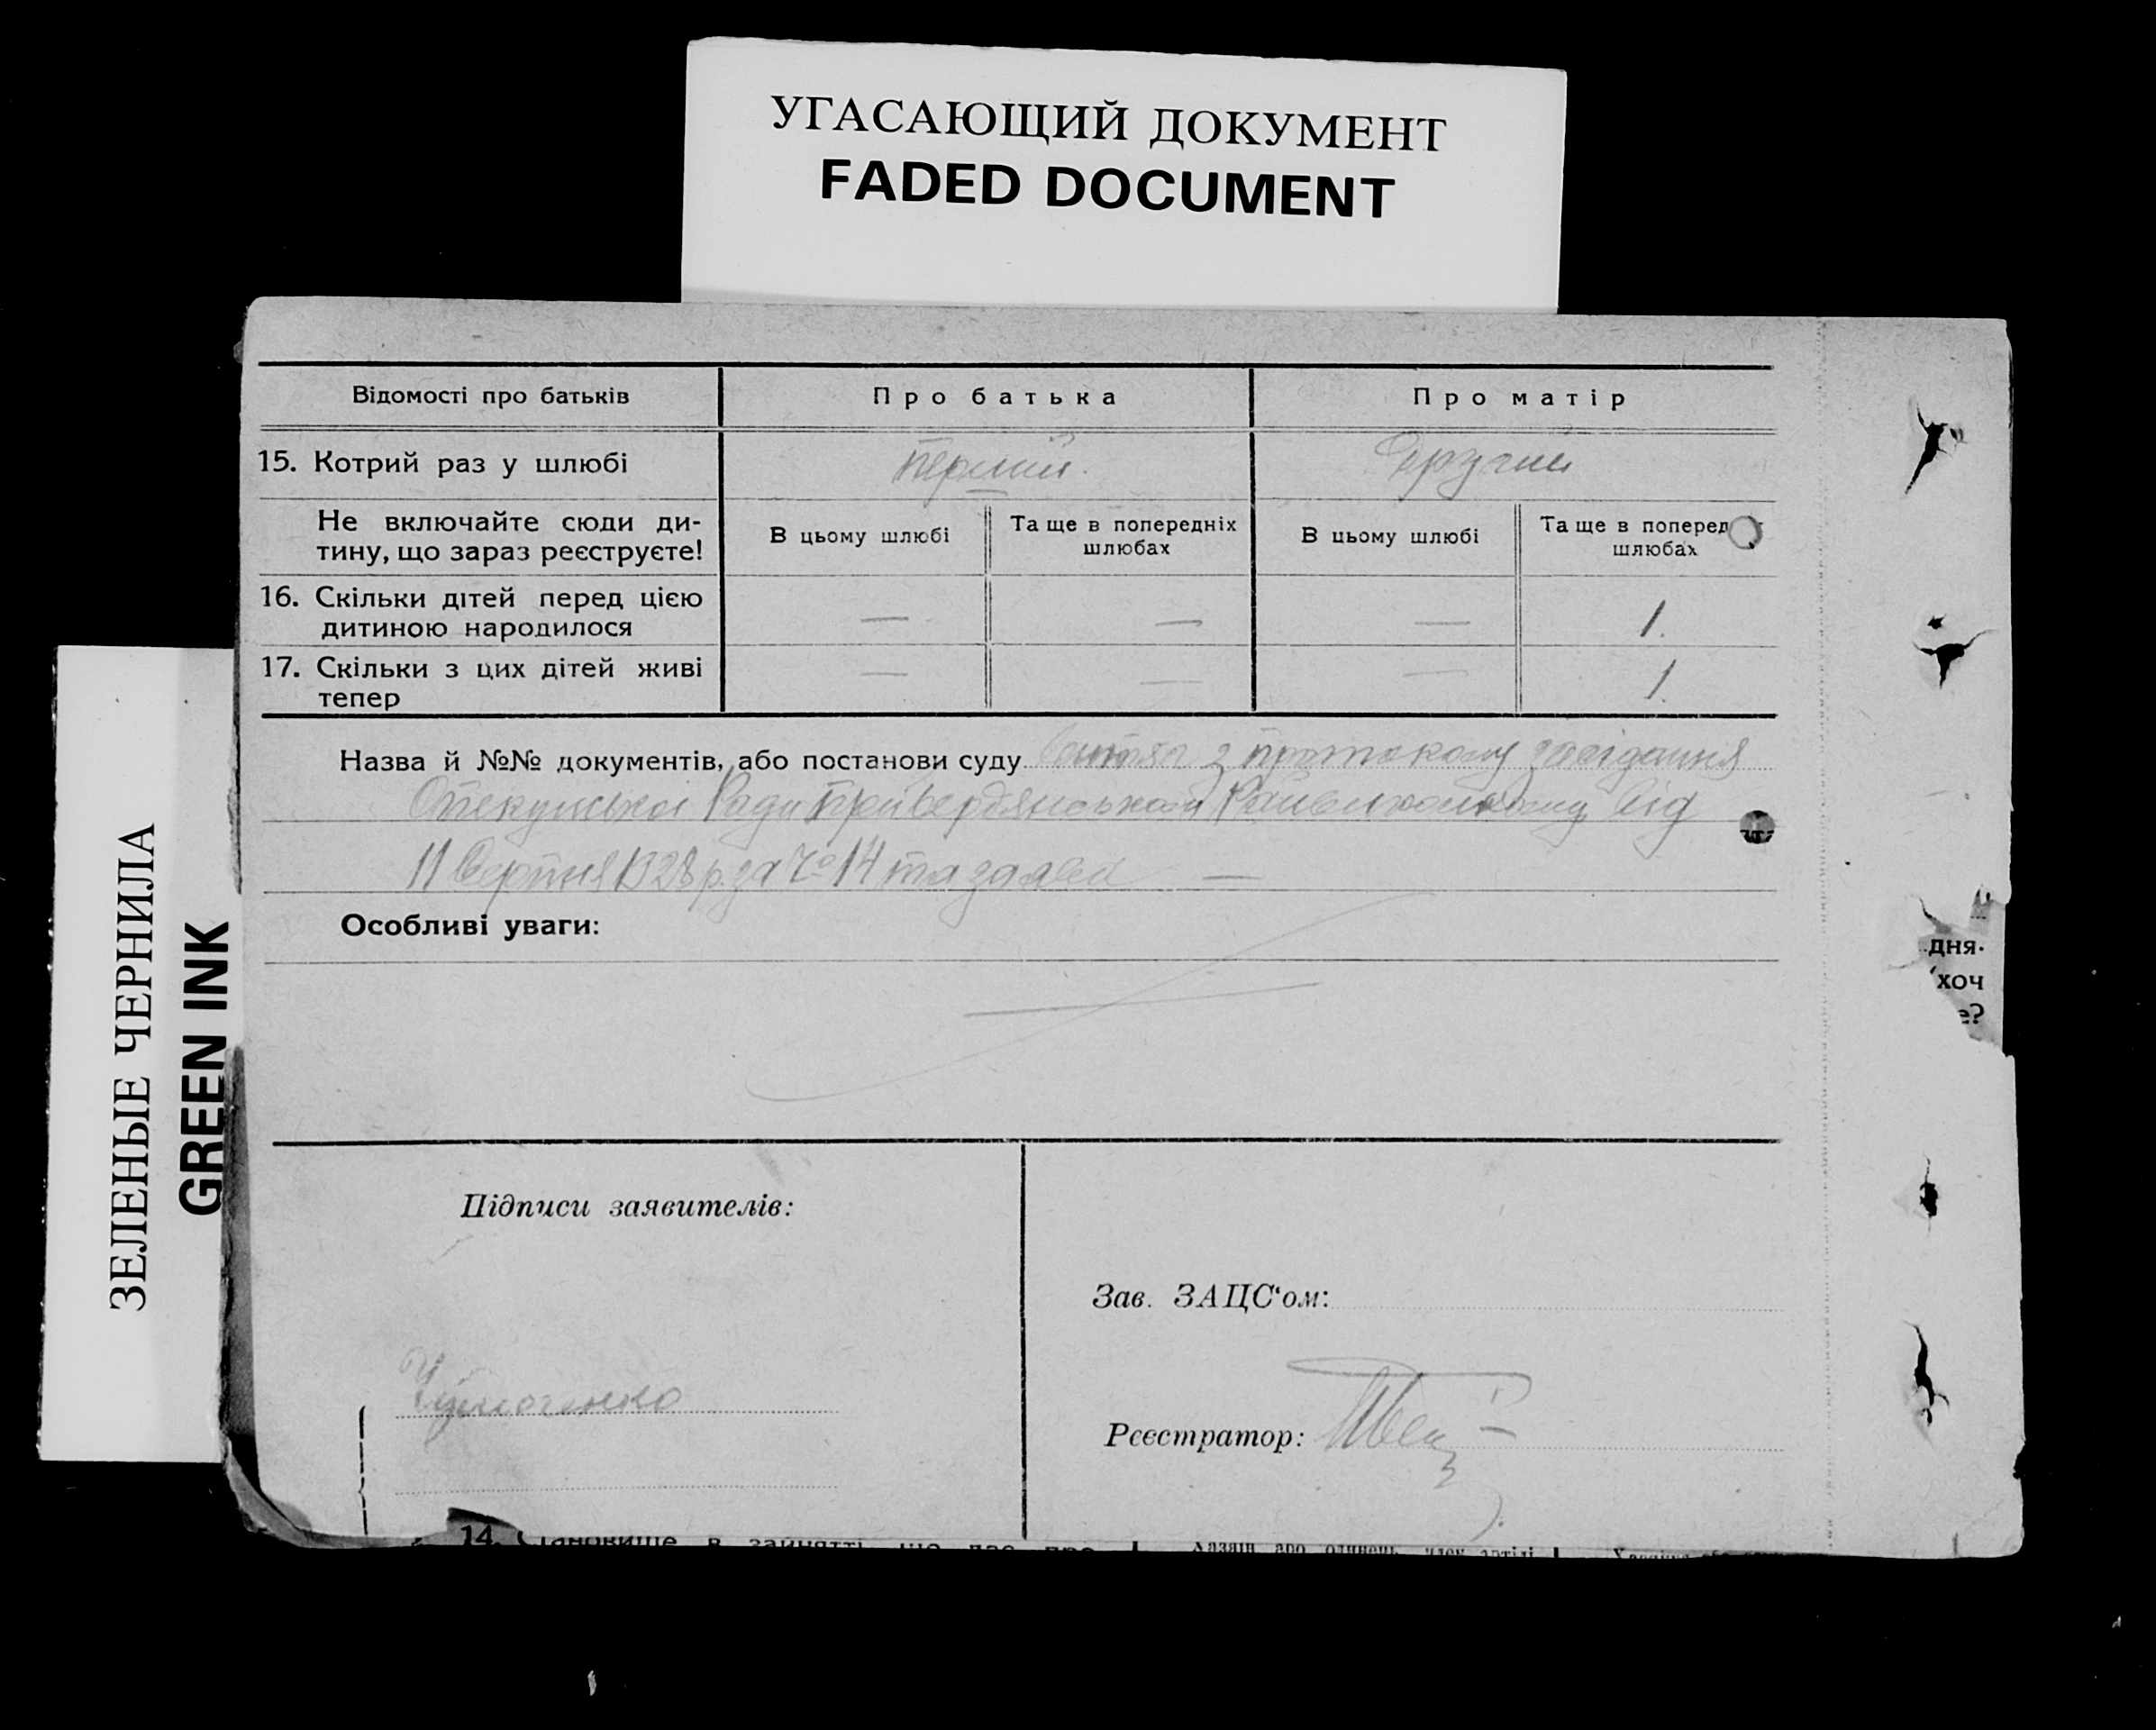 УГАСАЮЩИЙ ДОКУМЕНТ
FADED DOCUMENT
ЗЕЛЕНЫЕ ЧЕРНИЛА
GREEN INK
Відомості про батьків
Про батька
Про матір
15. Котрий раз у шлюбі
Перший.
Другий
Не включайте сюди ди-
тину, що зараз реєструєте!
В цьому шлюбі
Та ще в попередніх
шлюбах
В цьому шлюбі
Та ще в поперед
шлюбах
16. Скільки дітей перед цією
дитиною народилося
— — — 1.
17. Скільки з цих дітей живі
тепер
— — — 1.
Назва й №№ документів, або постанови суду з протоколу засідання
Опекунської Ради при Бердянськом Райвиконкому від
11 Серпня 1928 р. за № 14 та заява —
Особливі уваги:
Підписи заявителів:
Зав. ЗАЦС‘ом:
Реєстратор:
дня.
хоч
е?
14. Становище в занятті, що дає про